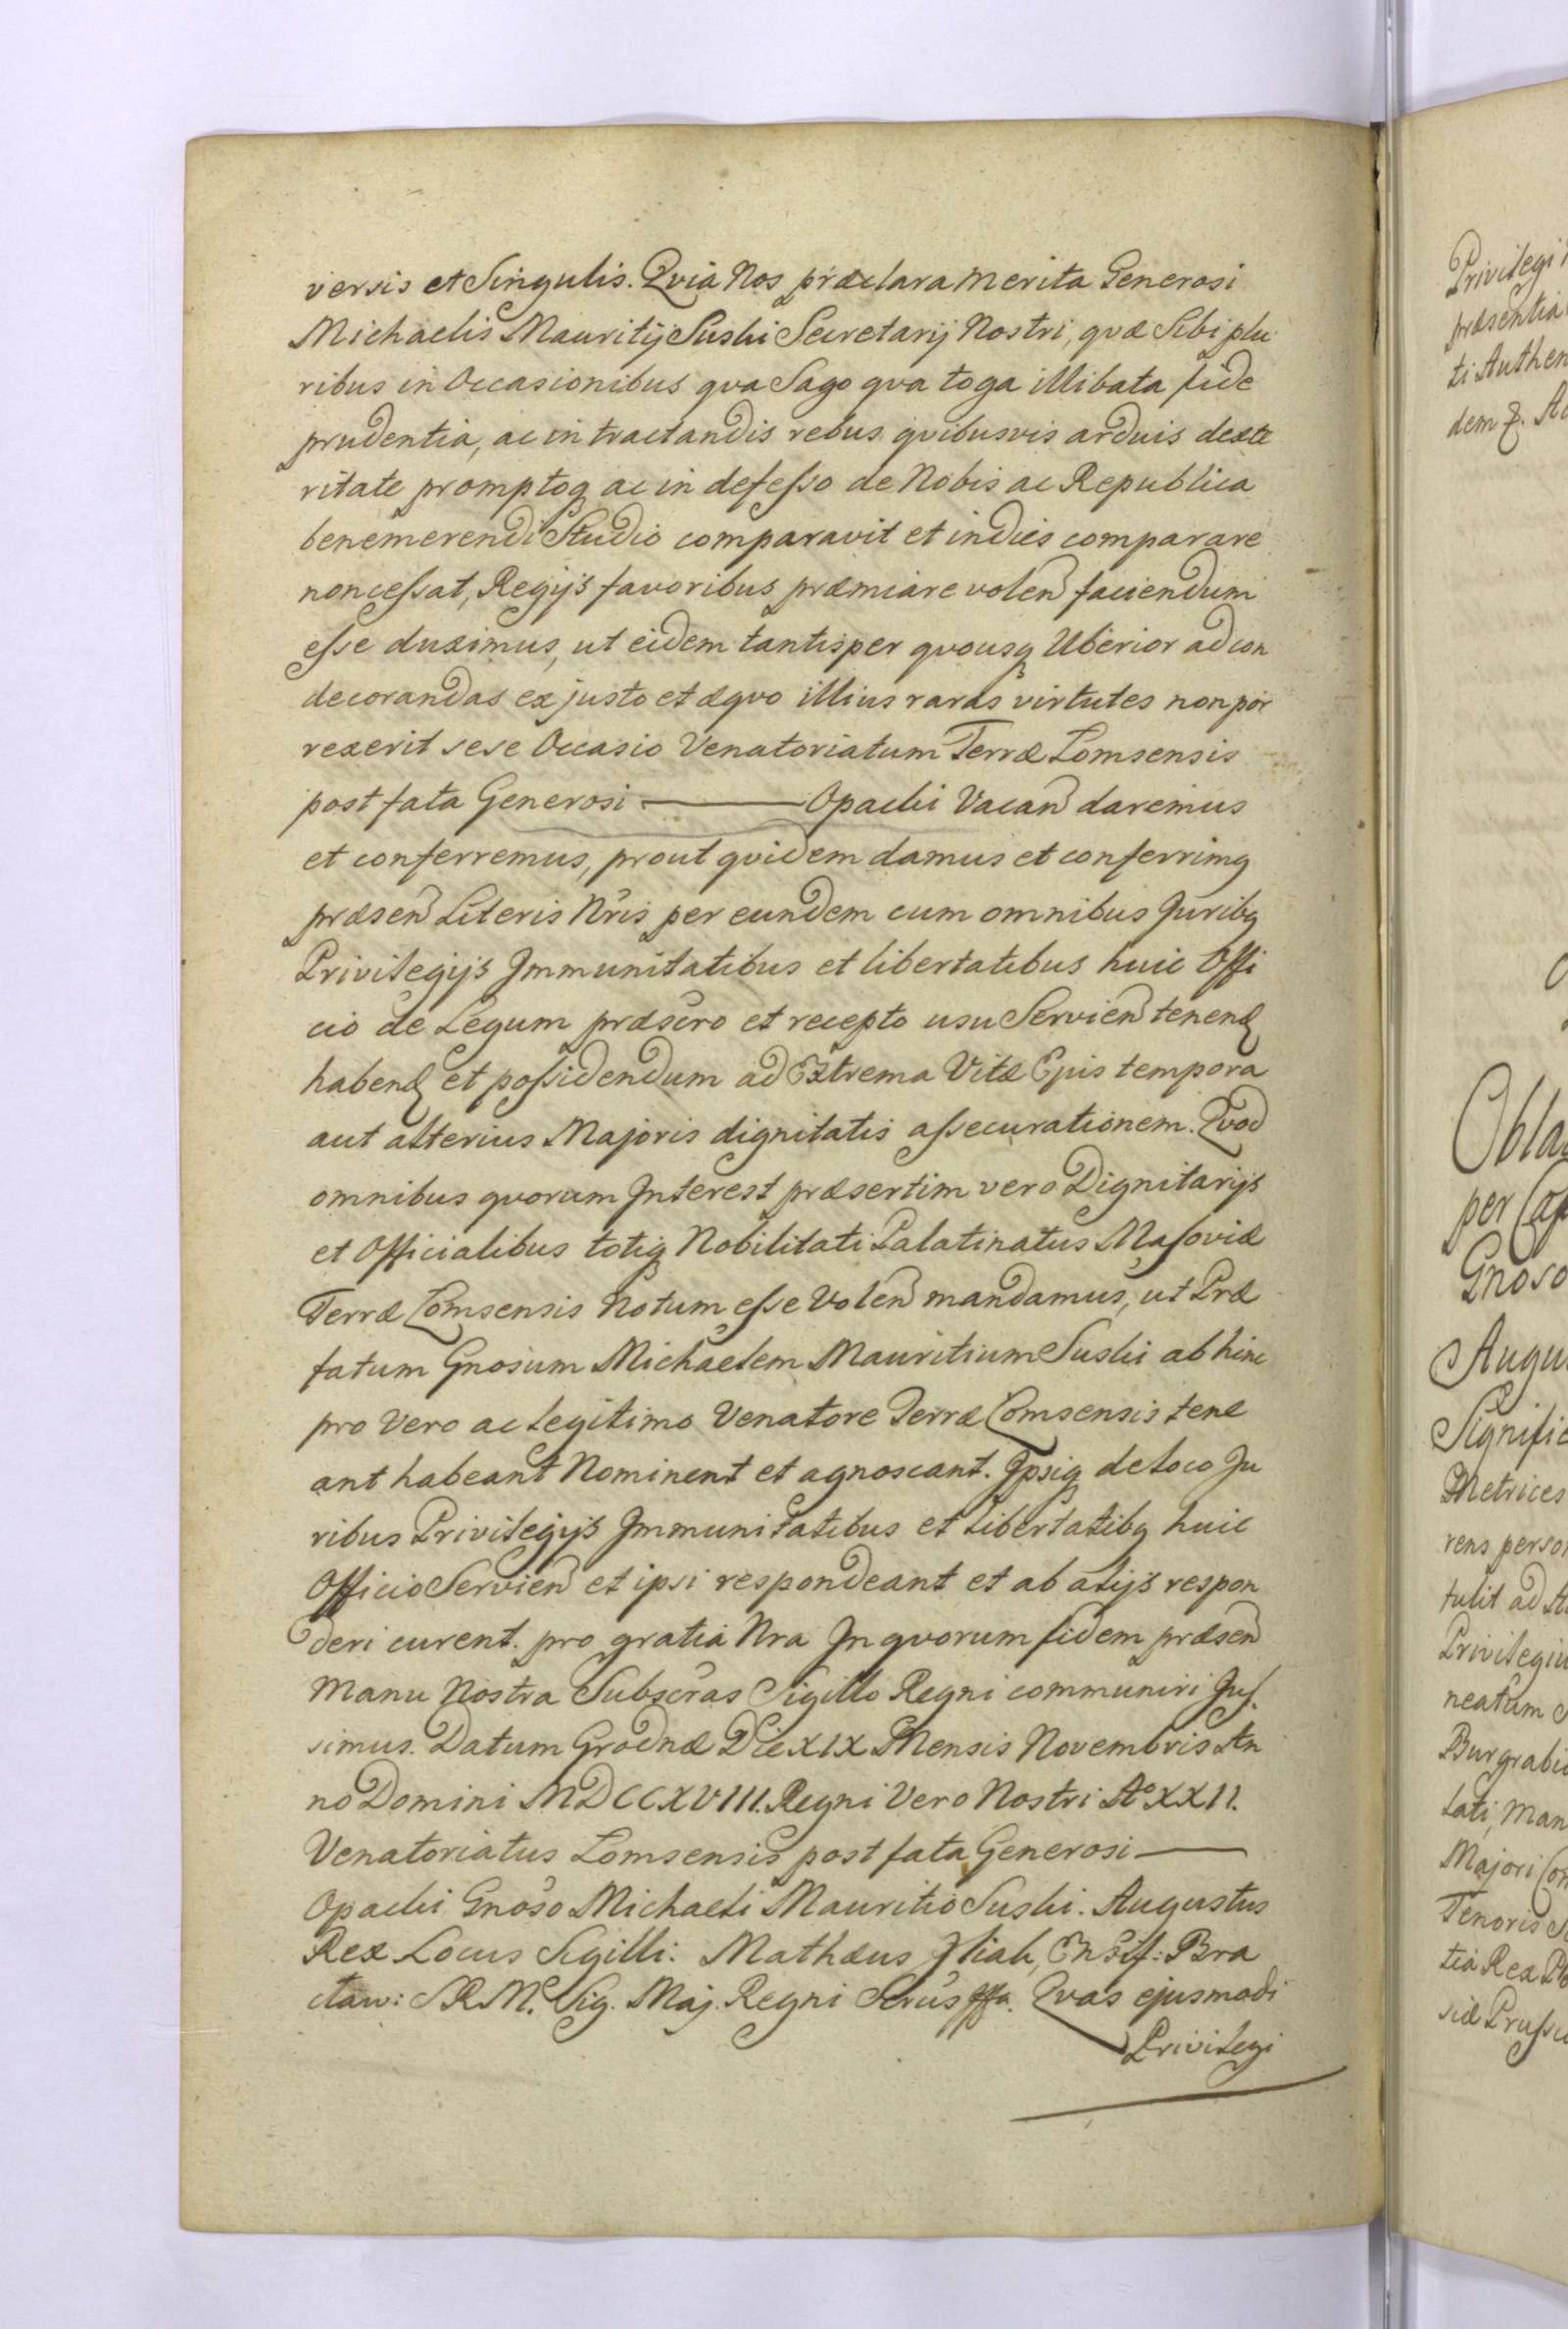 versis et Singulis. Qvia Nos præclara merita Generosi
Michaelis Mauritij Suski Secretarij Nostri, qvæ Sibi plu
ribus in Occasionibus qva Sago qva toga illibata fide
prudentia, ac in tractandis rebus qvibusvis arduis dexte
ritate promptoq ac in defesso de Nobis ac Republica
benemerendi Studio comparavit et indies comparare
non cessat, Regijs favoribus præmiare volen faciendum
esse duximus, ut eidem tantisper qvousq Uberior ad con
decorandas ex justo et æqvo illius raras virtutes non por
rexerit sese Occasio Venatoriatum Terræ Lomsensis
post fata Generosi — Opacki Vacan daremus
et conferremus, prout qvidem damus et conferrimq
præsen Literis Nris per eundem cum omnibus Juribq
Privilegijs Jmmunitatibus et libertatibus huic Offi
cio de Legum præscro et recepto usu Servien tenend
habend et possidendum ad Extrema Vitæ Ejus tempora
aut alterius Majoris dignitatis assecurationem. Qvod
omnibus qvorum Jnterest præsertim vero Dignitarijs
et Officialibus totiq Nobilitati Palatinatus Masoviæ
Terræ Lomsensis Notum esse Volen mandamus, ut Præ
fatum Gnosum Michaelem Mauritium Suski ab hinc
pro Vero ac legitimo Venatore Terræ Lomsensis tene
ant habeant Nominent et agnoscant. Jpsiq de loco Ju
ribus Privilegijs Jmmunitatibus et libertatibq huic
Officio Servien et ipsi respondeant et ab alijs respon
deri curent. pro gratia Nra Jn qvorum fidem præsen
Manu Nostra Subscras Sigillo Regni communiri Jus.
simus. Datum Grodnæ Die XIX Mensis Novembris An
no Domini MDCCXVIII. Regni Vero Nostri Aº XXII.
Venatoriatus Lomsensis post fata Generosi —
Opacki Gnoso Michaeli Mauritio Suski. Augustus
Rex Locus Sigilli: Mathæus Ensif: Bra
claw: S.R.M. Sig. Maj. Regni Qvas ejusmodi
Privilegi
Privilegi
præsentia
ti Authen
dem
Obla
per Cap
Gnoso
Augu
Signific
Metrices
rens perso
tulit ad A
Privilegiu
neatum
Burgrabi
lati, Man
Majori Con
Tenoris
tia Rex
siæ Prussi